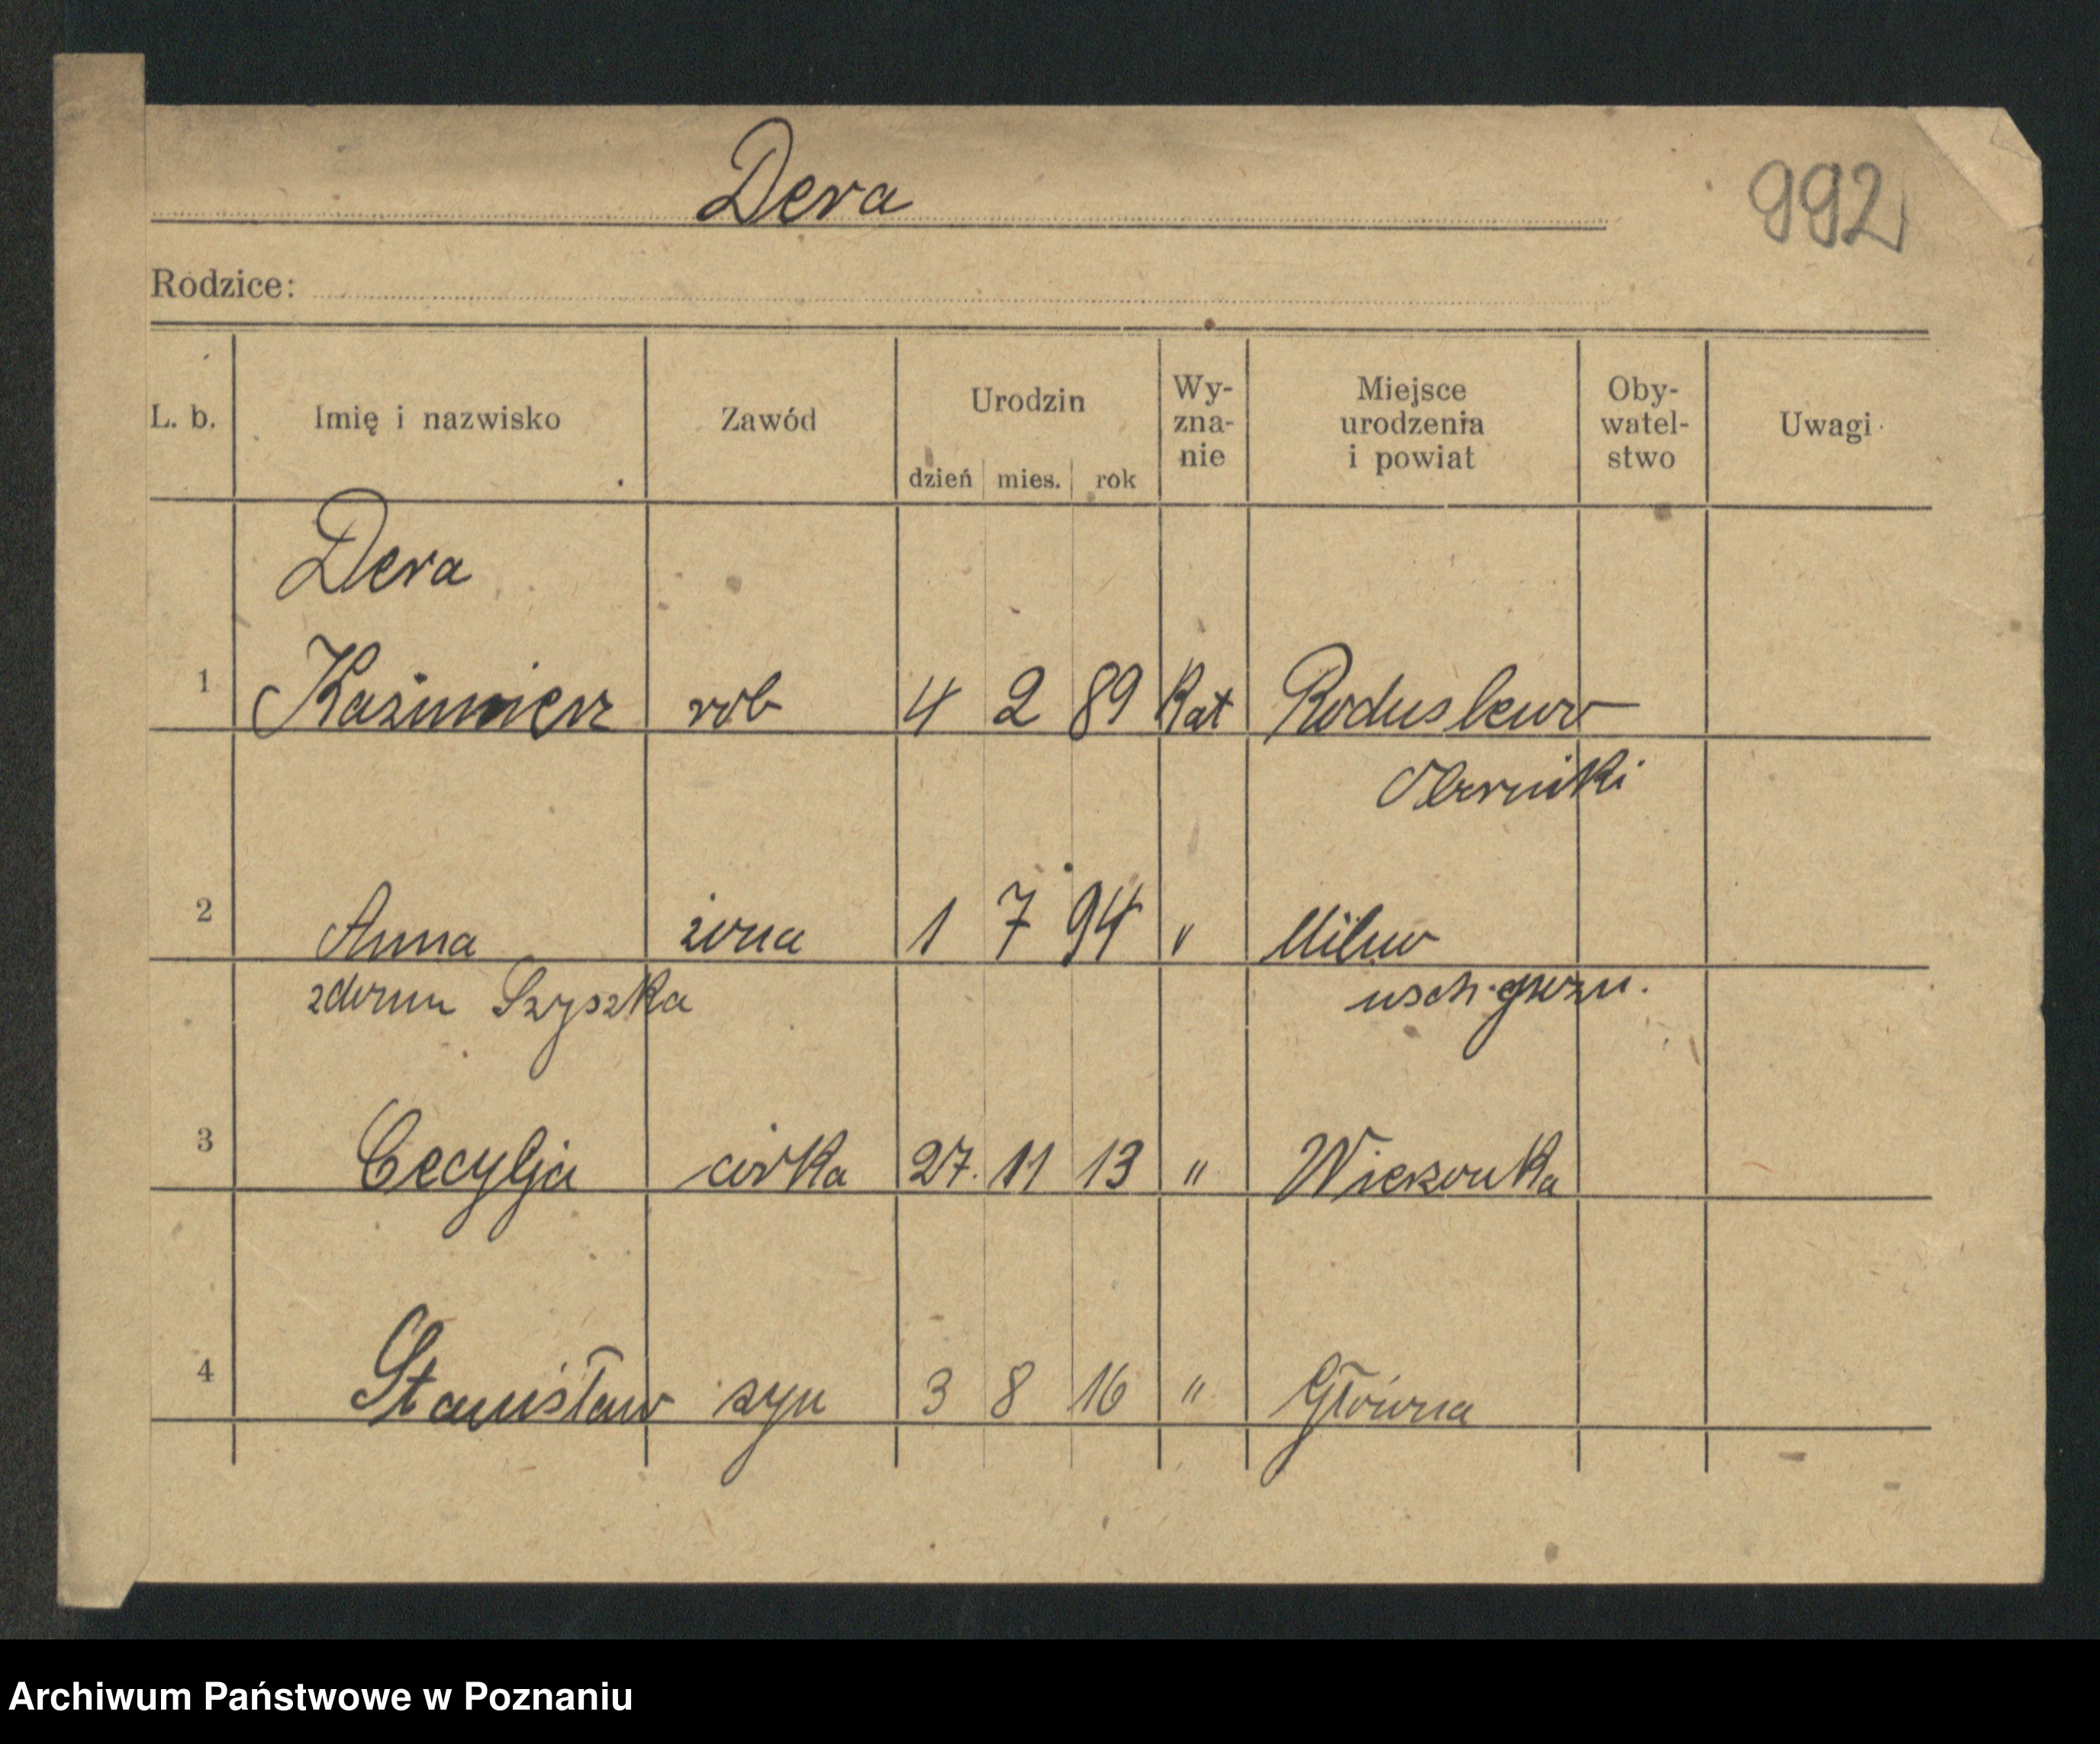 Dera
992
Rodzice:
L. b. Imię i nazwisko Zawód Urodzin dzień mies. rok Wy-zna-nie Miejsce urodzenia i powiat Oby-watel-stwo Uwagi
Dera
1 Kaźimierz rob 4 2 89 Kat
Oborniki
2 Anna żona 1 7 94 " Milno
zdomu Szyszka
3 Cecylja córka 27. 11 13 " Wierzonka
4 Stanisław syn 3 8 16 " Główna
Archiwum Państwowe w Poznaniu